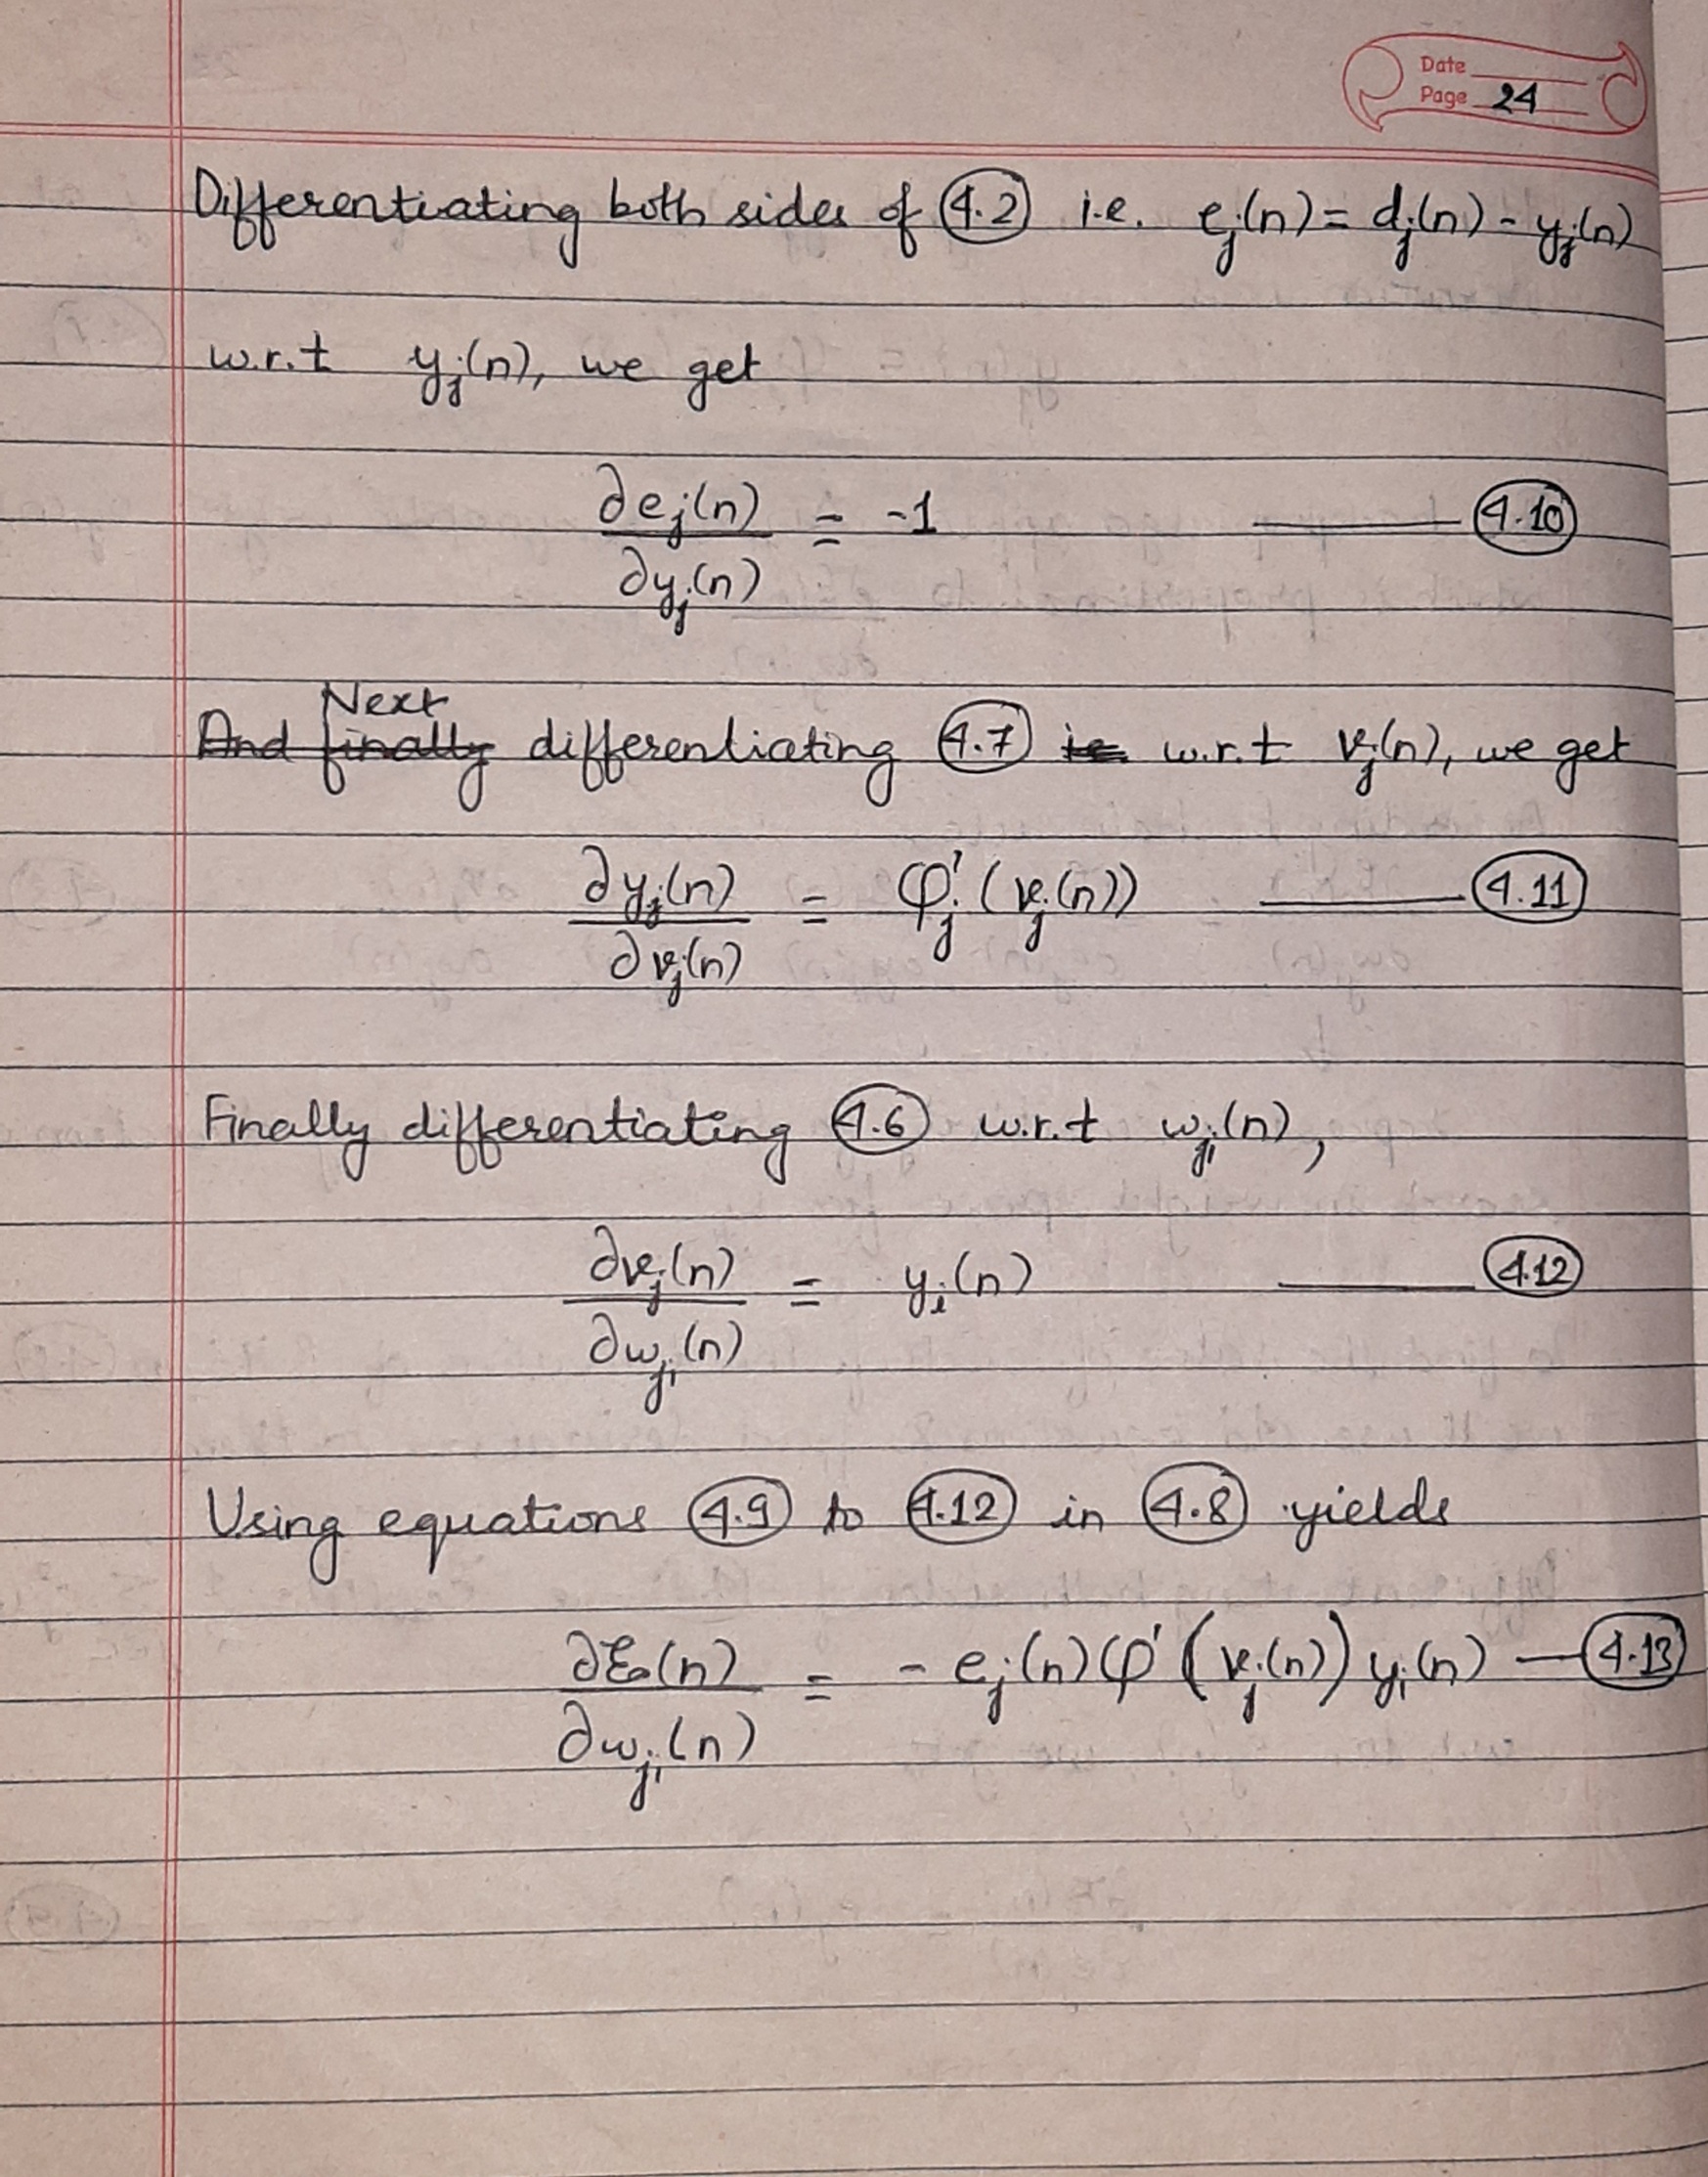 Date
Page 24
Differentiating both sides of (4.2) i.e. e_j(n) = d_j(n) - y_j(n)
w.r.t y_j(n), we get
∂e_j(n)/∂y_j(n) = -1 —— (4.10)
Next
~~And finally~~ differentiating (4.7) ~~ie~~ w.r.t v_j(n), we get
∂y_j(n)/∂v_j(n) = φ'_j (v_j(n)) —— (4.11)
Finally differentiating (4.6) w.r.t w_ji(n),
∂v_j(n)/∂w_ji(n) = y_i(n) —— (4.12)
Using equations (4.9) to (4.12) in (4.8) yields
∂ℰ(n)/∂w_ji(n) = - e_j(n) φ' (v_j(n)) y_i(n) — (4.13)